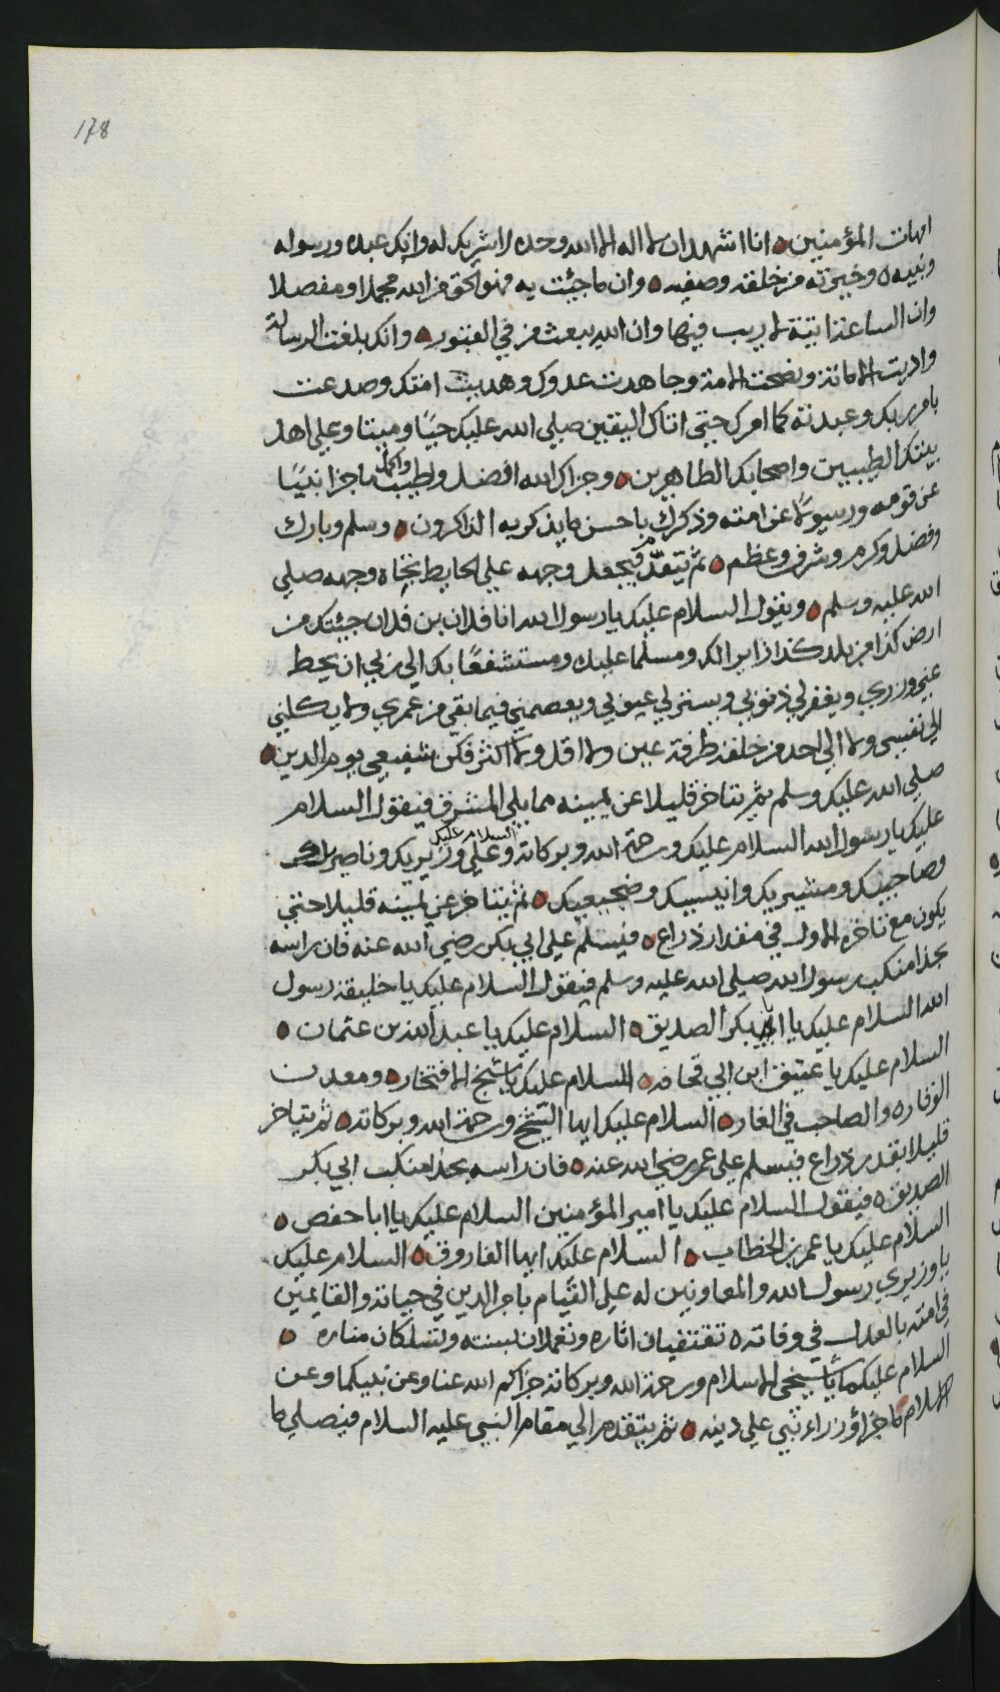 178
امهات المؤمنين انا اشهد ان لا اله الا الله وحده لا شريك له وانك عبده ورسوله
ونبيه وخيرته من خلقه وصفيه وان ما جئت به فهو الحق من الله مجملا ومفصلا
وان الساعة اتية لا ريب فيها وان الله يبعث من في القبور وانك بلغت الرسالة
واديت الامانة ونصحت الامة وجاهدت عدوك وهديت امتك وصدعت
بامر ربك وعبدته كما امرك حتى اتاك اليقين صلى الله عليك حيا وميتا وعلى اهل
بيتك الطيبين واصحابك الطاهرين وجزاك الله افضل واطيب واكمل ما جزا نبيًا
عن قومه ورسولًا عن امته وذكرك باحسن ما يذكر به الذاكرون وسلم وبارك
وفضل وكرم وشرف وعظم ثم يتقدّم فيجعل وجهه على الحايط تجاه وجهه صلى
الله عليه وسلم ويقول السلام عليك يا رسول الله انا فلان بن فلان جيئتك من
ارض كذا من بلد كذا زايرا لك ومسلما عليك ومستشفعًا بك الى ربي ان يحط
عني وزري ويغفر لي ذنوبي ويستر لي عيوبي ويعصمني فيما بقي من عمري ولا يكلني
الى نفسي ولا الى احد من خلقه طرفة عين ولا اقل ولا اكثر فكن شفيعي يوم الدين
صلى الله عليك وسلم ثم يتاخر قليلا عن يمينه مما يلي المشرق فيقول السلام
عليك يا رسول الله السلام عليك ورحمة الله وبركاته السلام عليك وعلى وزيريك وناصريك
وصاحبيك ومشيريك وانيسيك وضجيعيك ثم يتاخر عن يمينه قليلا حتى
يكون مع تاخره الاول في مقدار ذراع فيسلم على ابي بكر رضي الله عنه فان راسه
بحذا منكب رسول الله صلى الله عليه وسلم فيقول السلام عليك يا خليفة رسول
الله السلام عليك يا ابا بكر الصديق السلام عليك يا عبد الله بن عثمان
السلام عليك يا عتيق ابن ابي قحافه السلام عليك يا شيخ الافتخار ومعدن
الوقار والصاحب في الغار السلام عليك ايها الشيخ ورحمة الله وبركاته ثم يتاخر
قليلا بقدر ذراع فيسلم على عمر رضي الله عنه فان راسه بحذا منكب ابي بكر
الصديق فيقول السلام عليك يا امير المؤمنين السلام عليك يا ابا حفص
السلام عليك يا عمر بن الخطاب السلام عليك ايها الفاروق السلام عليك
يا وزيري رسول الله والمعاونين له على القيام بامر الدين في حياته والقايمين
في امته بالعدل في وفاته تقتفيان اثاره وتعملان بسنته وتسلكان مناره
السلام عليكما يا شيخي الاسلام ورحمة الله وبركاته جزاكم الله عنا وعن نبيكما وعن
الاسلام ما جزا وزراء نبي على دينه ثم يتقدم الى مقام النبي عليه السلام فيصلي ما